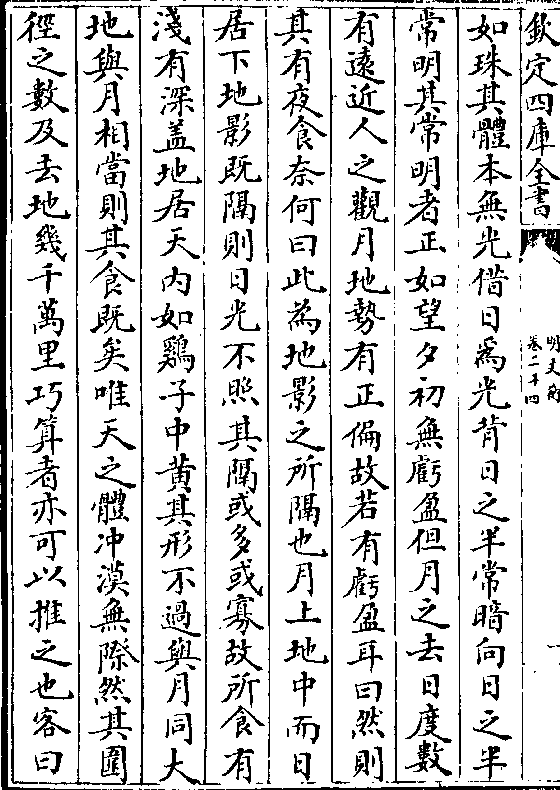 欽定四庫全書
明文衡
卷二十四
如珠其體本無光借日爲光背日之半常暗向日之半
常明其常明者正如望夕初無虧盈但月之去日度數
有遠近人之觀月地勢有正偏故若有虧盈耳曰然則
其有夜食奈何曰此為地影之所隔也月上地中而日
居下地影既隔則日光不照其隔或多或寡故所食有
淺有深盖地居天內如鷄子中黄其形不過與月同大
地與月相當則其食既矣唯天之體冲漠無際然其圍
徑之數及去地幾千萬里巧算者亦可以推之也客曰